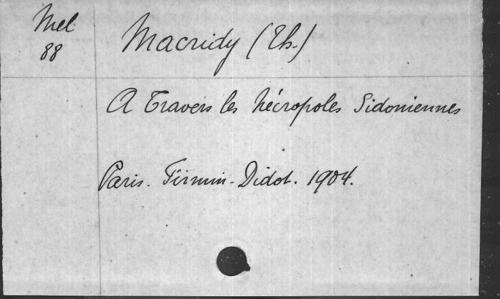 Mel
88
Macridy (Th.)
A Travers les nécropoles Sidoniennes
Paris. Firmin-Didot. 1904.